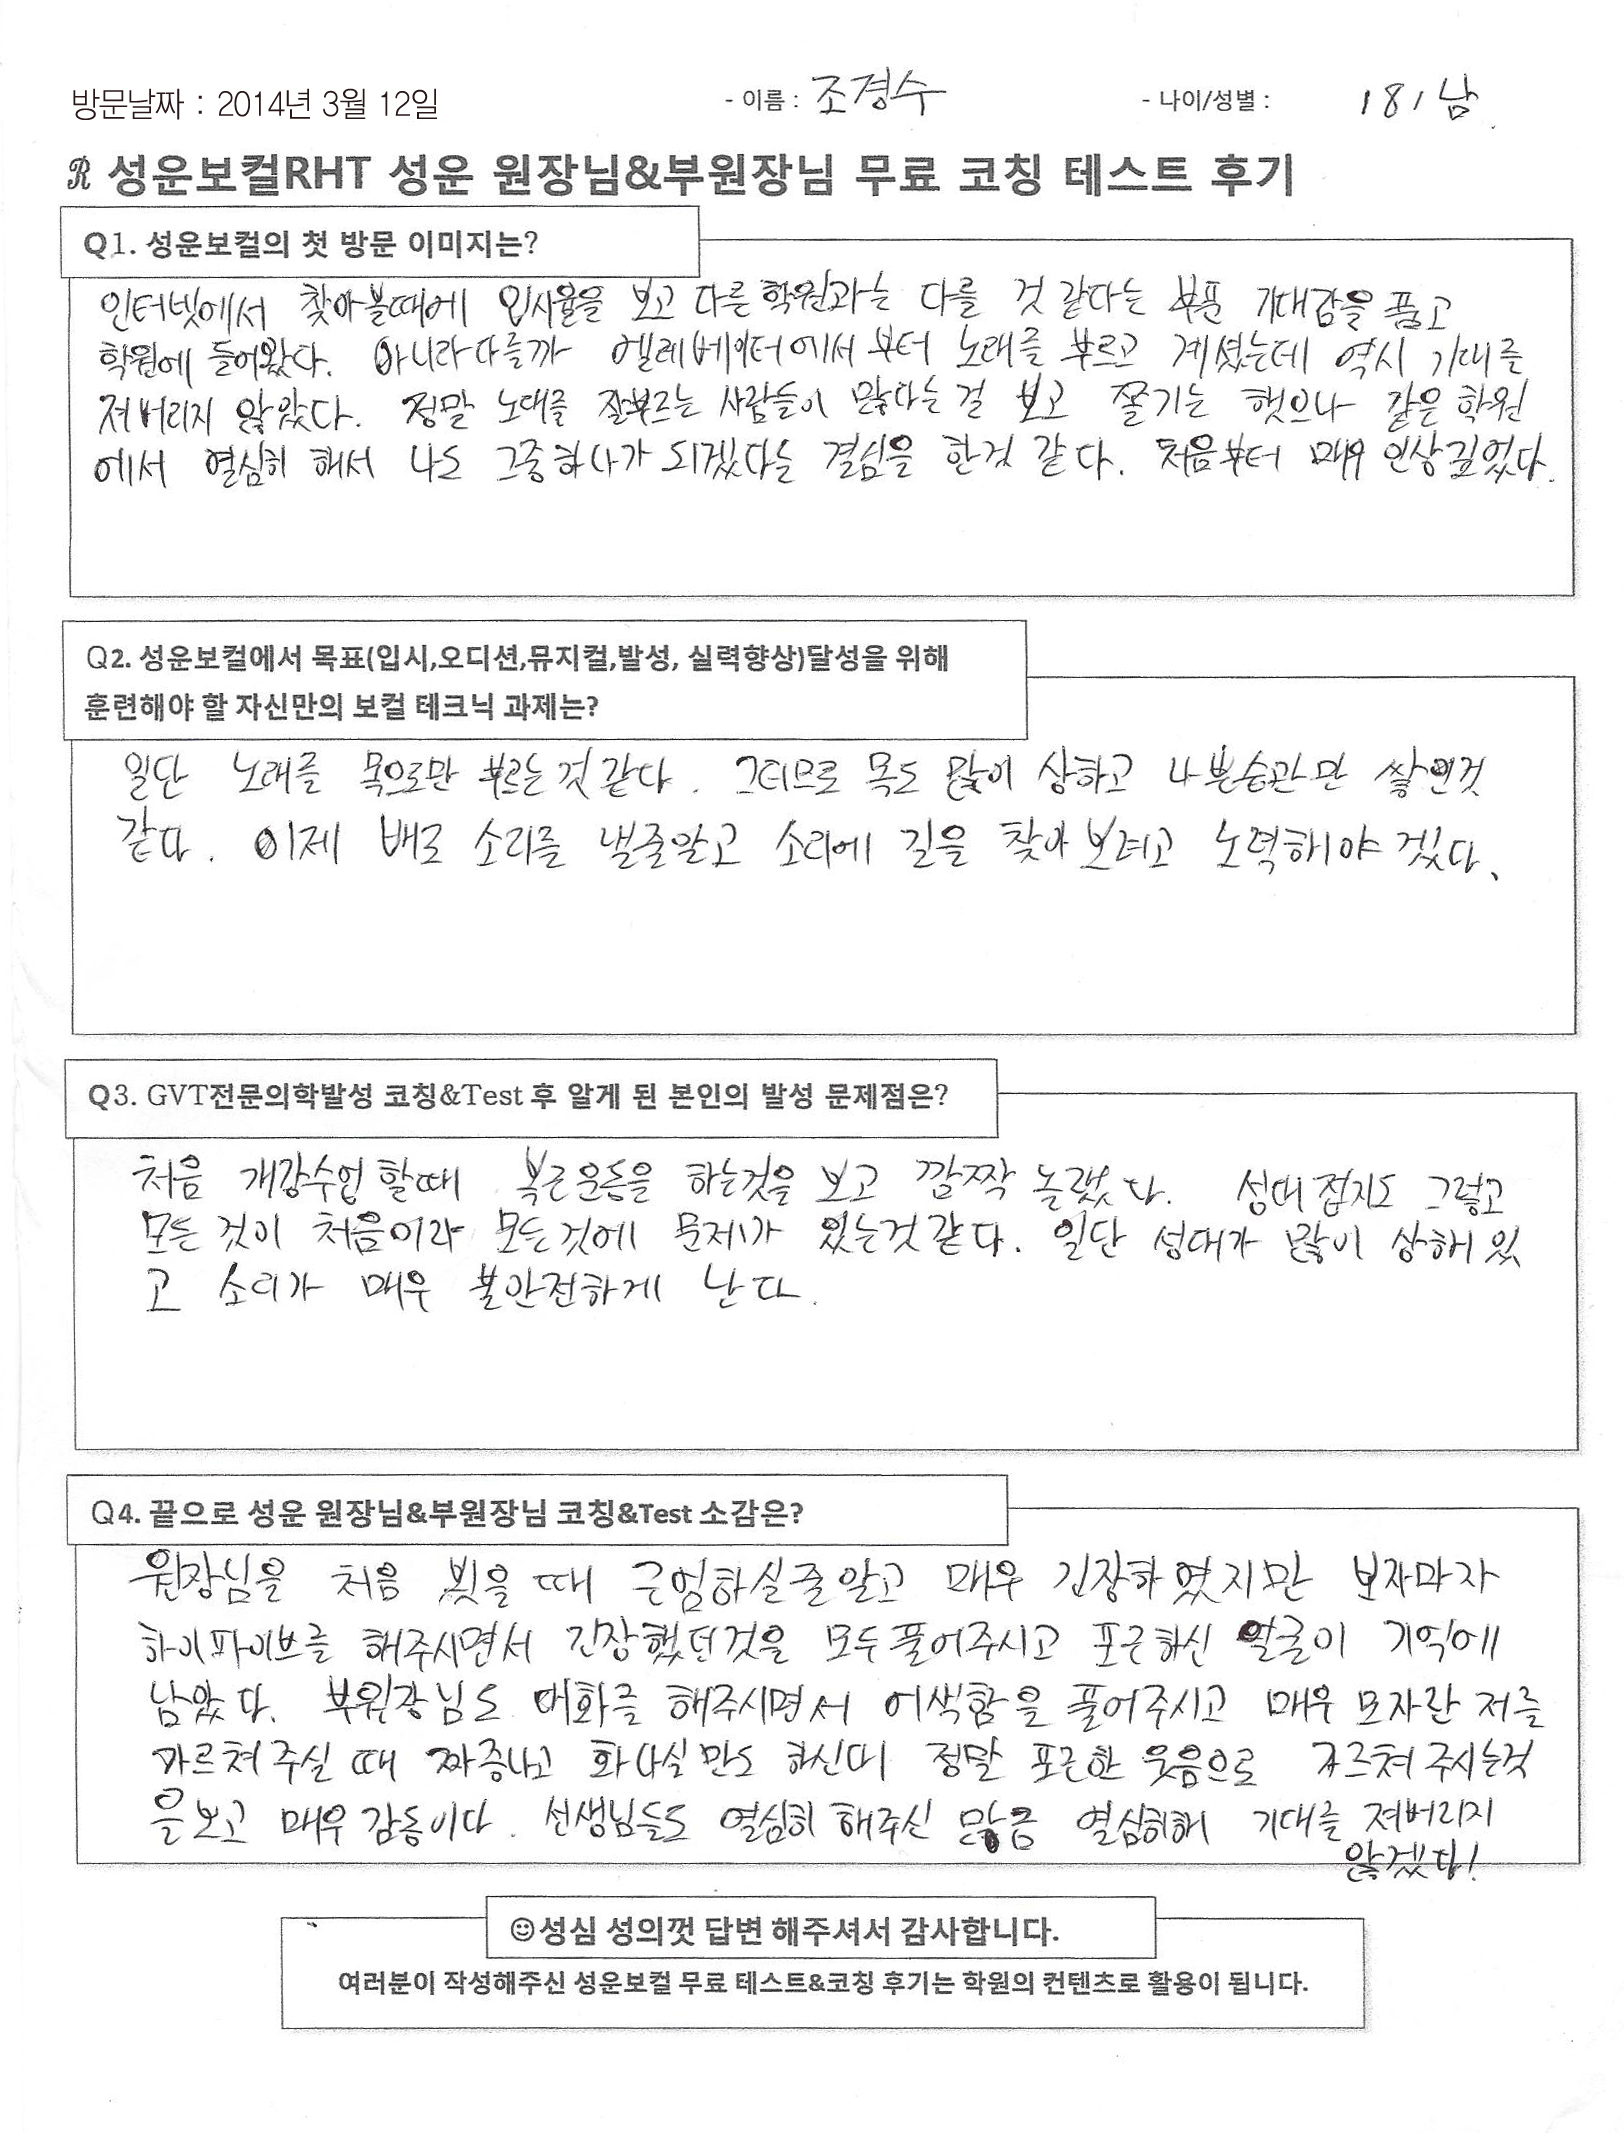 방문날짜 : 2014년 3월 12일 - 이름 : 조경수 - 나이/성별 : 18/남
R 성운보컬RHT 성운 원장님&부원장님 무료 코칭 테스트 후기
Q1. 성운보컬의 첫 방문 이미지는?
인터넷에서 찾아볼때에 입시율을 보고 다른학원과는 다를 것 같다는 부푼 기대감을 품고
학원에 들어왔다. 아니라다를까 엘레베이터에서부터 노래를 부르고 계셨는데 역시 기대를
져버리지 않았다. 정말 노래를 잘부르는 사람들이 많다는 걸 보고 쫄기는 했으나 같은 학원
에서 열심히 해서 나도 그중하나가 되겠다는 결심을 한것 같다. 처음부터 매우 인상깊었다.
Q2. 성운보컬에서 목표(입시,오디션,뮤지컬,발성, 실력향상)달성을 위해
훈련해야 할 자신만의 보컬 테크닉 과제는?
일단 노래를 목으로만 부르는것 같다. 그러므로 목도 많이 상하고 나쁜습관만 쌓인것
같다. 이제 배로 소리를 낼줄알고 소리에 길을 찾아보려고 노력해야겠다.
Q3. GVT전문의학발성 코칭&Test 후 알게 된 본인의 발성 문제점은?
처음 개강수업할때 복근운동을 하는것을 보고 깜짝 놀랬다. 성대접지도 그렇고
모든 것이 처음이라 모든것에 문제가 있는것같다. 일단 성대가 많이 상해있
고 소리가 매우 불안전하게 난다.
Q4. 끝으로 성운 원장님&부원장님 코칭&Test 소감은?
원장님을 처음 뵜을 때 근엄하실줄알고 매우 긴장하였지만 보자마자
하이파이브를 해주시면서 긴장했던것을 모두풀어주시고 포근하신 얼굴이 기억에
남았다. 부원장님도 대화를 해주시면서 어색함을 풀어주시고 매우 모자란 저를
가르쳐주실 때 짜증나고 화나실만도 하신데 정말 포근한 웃음으로 가르쳐주시는것
을보고 매우감동이다. 선생님들도 열심히 해주신 많큼 열심히해 기대를 져버리지
않겠다!
☺성심 성의껏 답변 해주셔서 감사합니다.
여러분이 작성해주신 성운보컬 무료 테스트&코칭 후기는 학원의 컨텐츠로 활용이 됩니다.